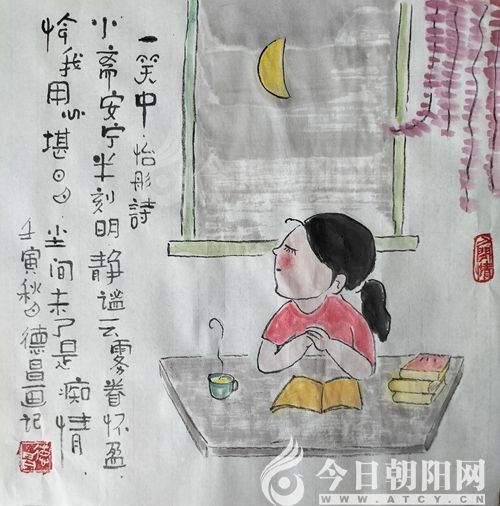 一笑中·怡彤詩
小斋安宁半刻明静谧云雾眷怀盈
我用心堪 尘间未了是痴情
壬寅秋日德昌画记
今日朝阳网
WWW.ATCY.CN